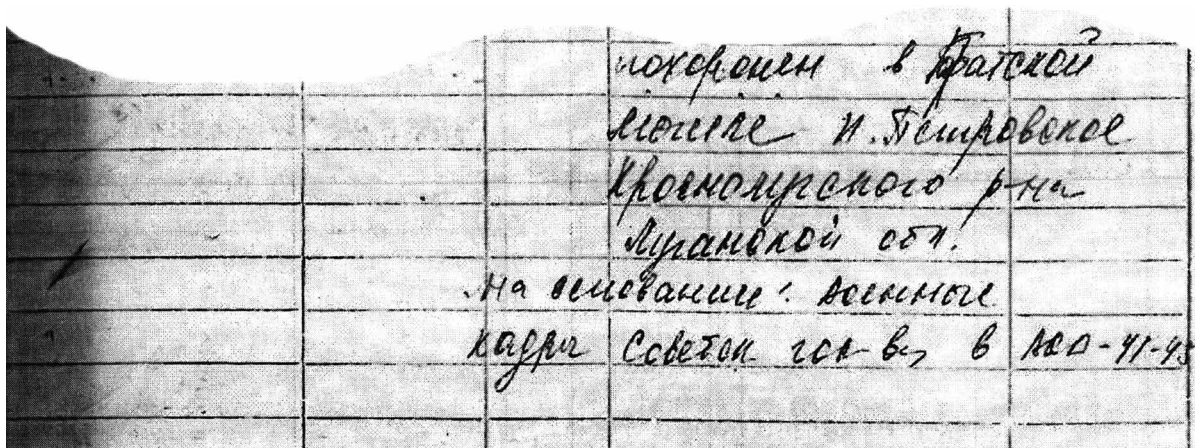 похоронен в братской
могиле н. Петровское
Краснолучского р-на
Луганской обл.
На основании: военные
кадры Советск гос-ва в ВОВ-41-45